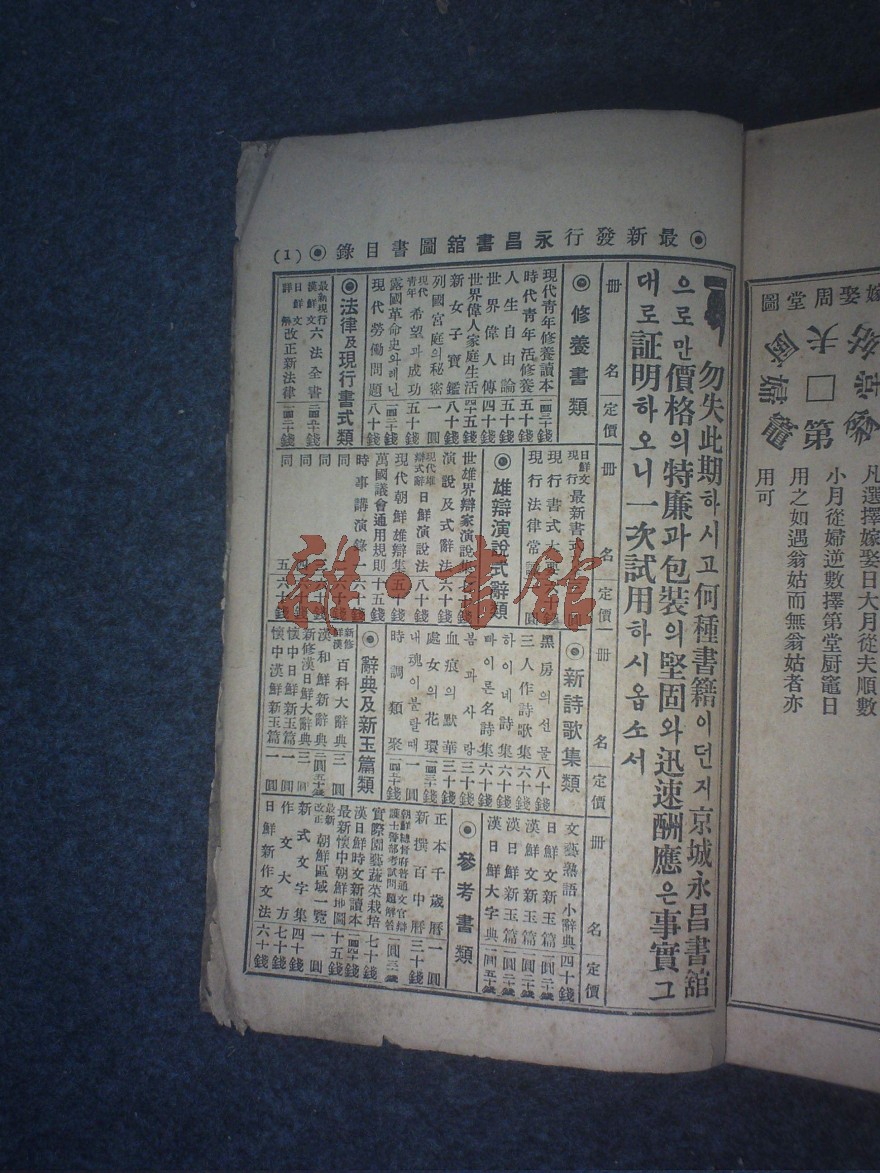 ◉最新發行永昌書舘圖書目錄◉ (1)
勿失此期하시고何種書籍이던지京城永昌書舘
으로만價格의特廉과包裝의堅固와迅速酬應은事實그
대로証明하오니一次試用하시옵소서
册名 定價
◉修養書類
現代靑年修養讀本
時代靑年活修養 五十錢
人生自由論 五十錢
世界偉人傳 四十錢
世界偉人家庭生活 四十五錢
新女子寶鑑 八十錢
列國宮庭의秘密 一圓
現代靑年 希望과成功 五十錢
露國革命史와레닌
現代勞働問題 八十錢
◉法律及現行書式類
最新現行 漢鮮文 六法全書
日鮮文 詳解 改正新法律
册名 定價
日鮮文 現行 最新書式
現行書式大
現行法律常
◉雄辯演說式辭類
世界雄辯家演說集
演說及式辭法 六十錢
現代雄辯式辭 日鮮演說法 八十錢
現代朝鮮雄辯集 五十錢
萬國議會通用規則 十五錢
時事講演錄 六十錢
同
同
同
同 五 六十錢
册名 定價
◉新詩歌集類
黑房의선물 八十錢
三人作詩歌集 六十錢
하이네詩集 六十錢
빠이론名詩集 六十錢
봄과사랑 三十錢
血痕의默華 三十錢
處女의花環
내魂이불탈때 一圓
時調類聚
◉辭典及新玉篇類
新修 鮮漢 百科大辭典 三圓
漢和鮮新辭典 二圓五十錢
新修漢日鮮大辭典 三圓
懷中日鮮新玉篇 一圓
懷中漢鮮新玉篇 一圓
册名 定價
文藝熟語小辭典 四十錢
日鮮文新玉篇 一圓二十錢
漢鮮文新玉篇 一圓二十錢
漢日鮮新玉篇 一圓二十錢
漢日鮮大字典 一圓五十錢
◉參考書類
正本千歲曆 一圓
新撰百中曆 三十錢
朝鮮總督府普通文官辯護士警部考試問題解答
實際園藝蔬菜栽培 七十錢
漢日鮮時文新讀本
最新懷中朝鮮地圖 十五錢
最新改正 朝鮮區域一覽 一圓
新式文字集 四十錢
作文大方 七十錢
日鮮新作文法 六十錢
嫁娶周堂圖
夫
姑
第
凡選擇嫁娶日大月從夫順數
小月從婦逆數擇第堂厨竈日
用之如遇翁姑而無翁姑者亦
用可
雜·書舘